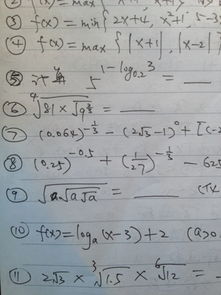 ② f(x)=max
③ f(x)=min{2x+4, x²+1, 5-3
④ f(x)=max{|x+1|, |x-2|
⑤ 计算 5^{1-log_{0.2}3} = ___
⑥ ⁴√(81×√(9^{2/3})) = ___
⑦ (0.064)^{-1/3} - (2√3-1)⁰ + [(-2
⑧ (0.25)^{-0.5} + (1/27)^{-1/3} - 625
⑨ √(a√(a√a)) = ___
⑩ f(x)=log_a(x-3)+2 (a>0
⑪ 2√3 × ³√1.5 × ⁶√12 = ___